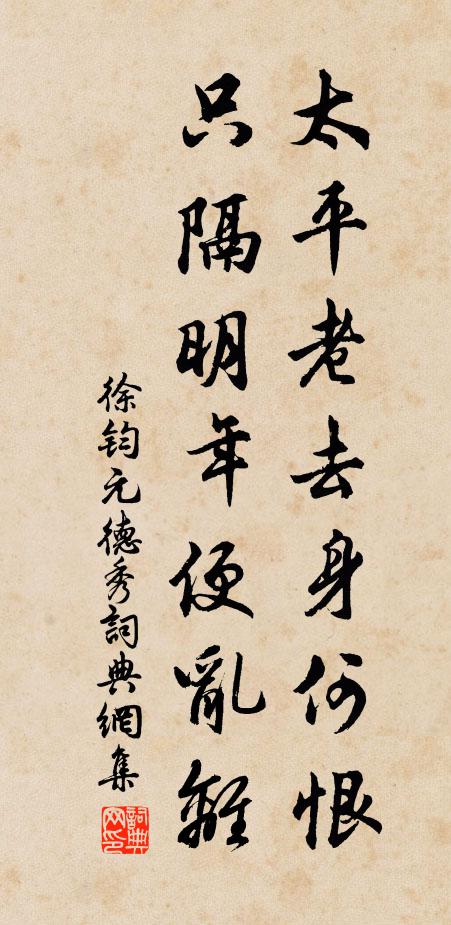 太平老去身何恨
只隔明年便亂離
徐鈞元德秀詞典網集
詞典網印